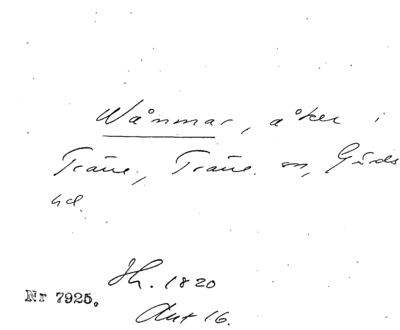 Wånmar, åker i
Träne, Träne sn, Gärds
hd.
Sh. 1820
Akt 16.
Nr 7925.